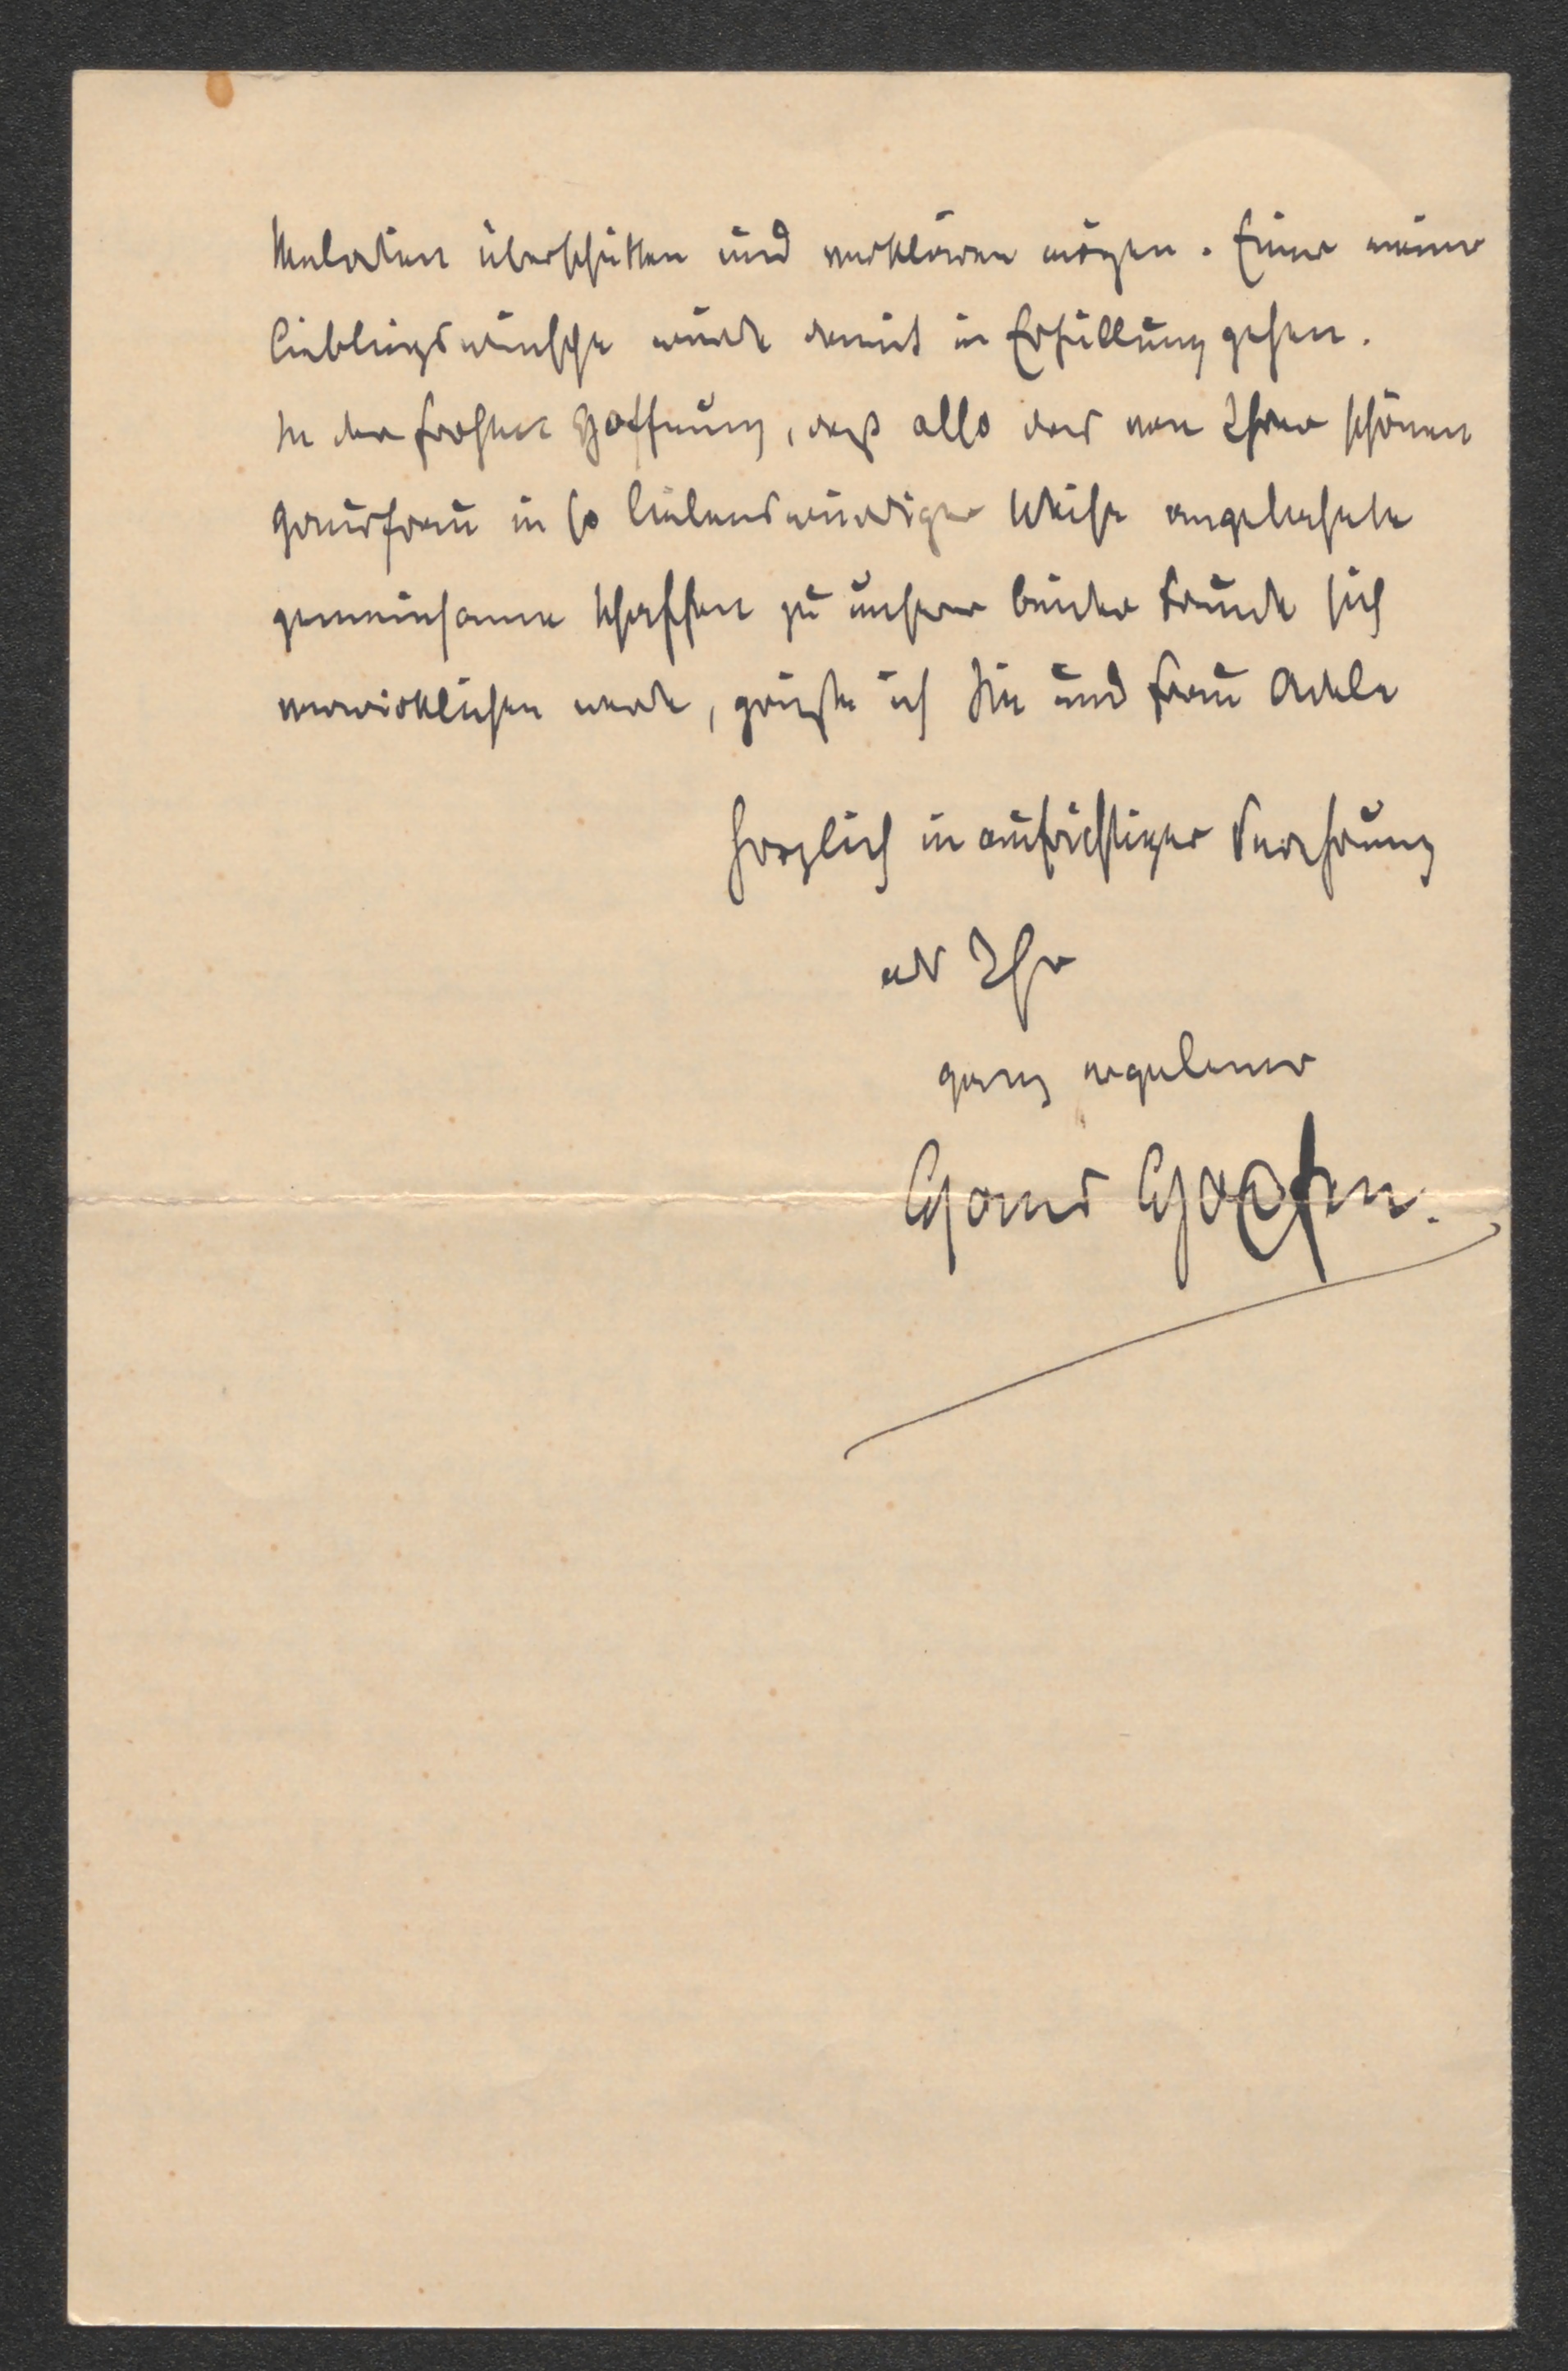 Melodien überschütten und verklären mögen. Einer meiner
Lieblingswünsche würde damit in Erfüllung gehen.
In der frohen Hoffnung, daß also das von Ihrer schönen
Hausfrau in so liebenswürdiger Weise angebahnte
gemeinsame Schaffen zu unserer beider Freude sich
verwirklichen werde, grüße ich Sie und Frau Adele
herzlich in aufrichtiger Verehrung
als Ihr
ganz ergebener
Hans